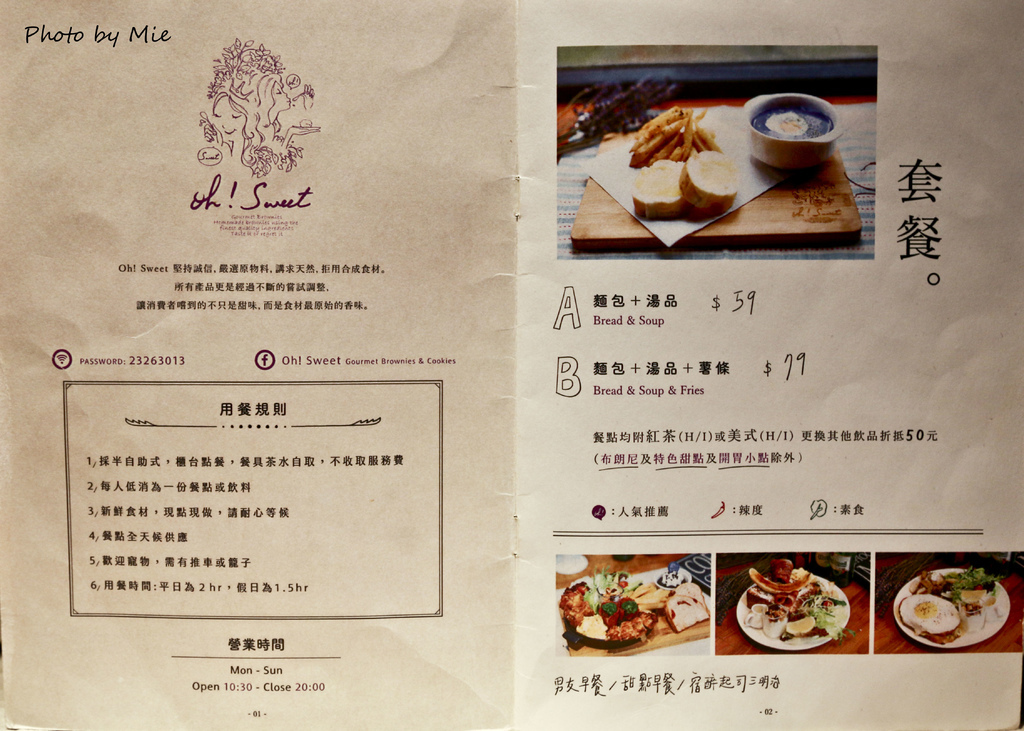 Photo by Mie
oh!
Sweet
oh! Sweet
Gourmet Brownies
Homemade brownies using the
finest quality ingredients
Taste it or regret it
Oh! Sweet 堅持誠信,嚴選原物料,講求天然,拒用合成食材。
所有產品更是經過不斷的嘗試調整,
讓消費者嚐到的不只是甜味,而是食材最原始的香味。
PASSWORD: 23263013
Oh! Sweet Gourmet Brownies & Cookies
用餐規則
1/採半自助式,櫃台點餐,餐具茶水自取,不收取服務費
2/每人低消為一份餐點或飲料
3/新鮮食材,現點現做,請耐心等候
4/餐點全天候供應
5/歡迎寵物,需有推車或籠子
6/用餐時間:平日為2hr,假日為1.5hr
營業時間
Mon - Sun
Open 10:30 - Close 20:00
- 01 -
套餐。
oh! Sweet
A 麵包+湯品 $59
Bread & Soup
B 麵包+湯品+薯條 $79
Bread & Soup & Fries
餐點均附紅茶(H/I)或美式(H/I) 更換其他飲品折抵50元
(布朗尼及特色甜點及開胃小點除外)
:人氣推薦 :辣度 :素食
男友早餐/甜點早餐/宿醉起司三明治
- 02 -